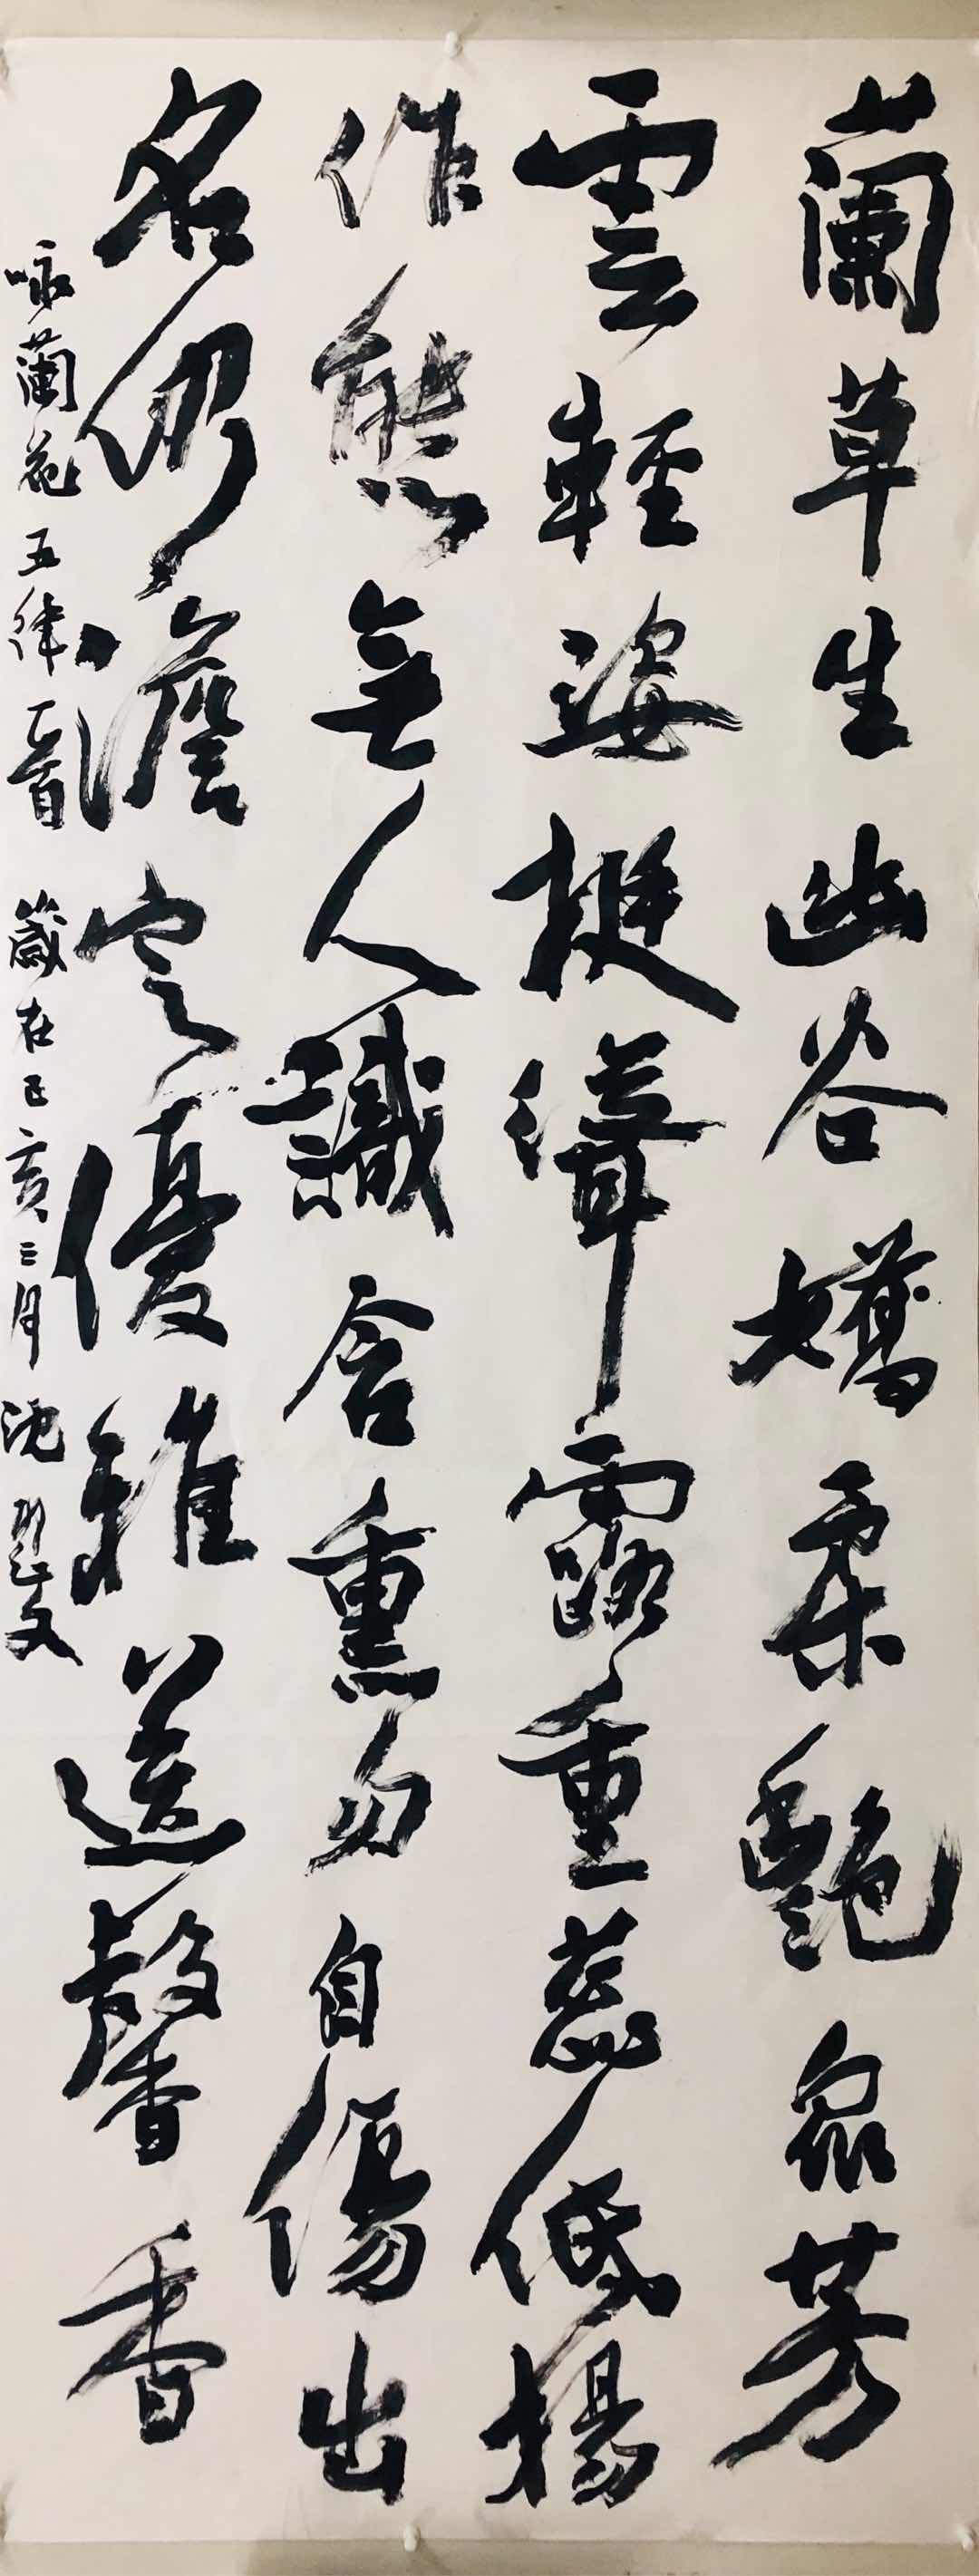 蘭草生幽谷嬌柔艷眾芳
雲輕姿挺聳露重蕊低揚
作態無人識含熏勿自傷出
名仍澹定優雅送馨香
咏蘭花五律一首 歲在己亥三月 沈文